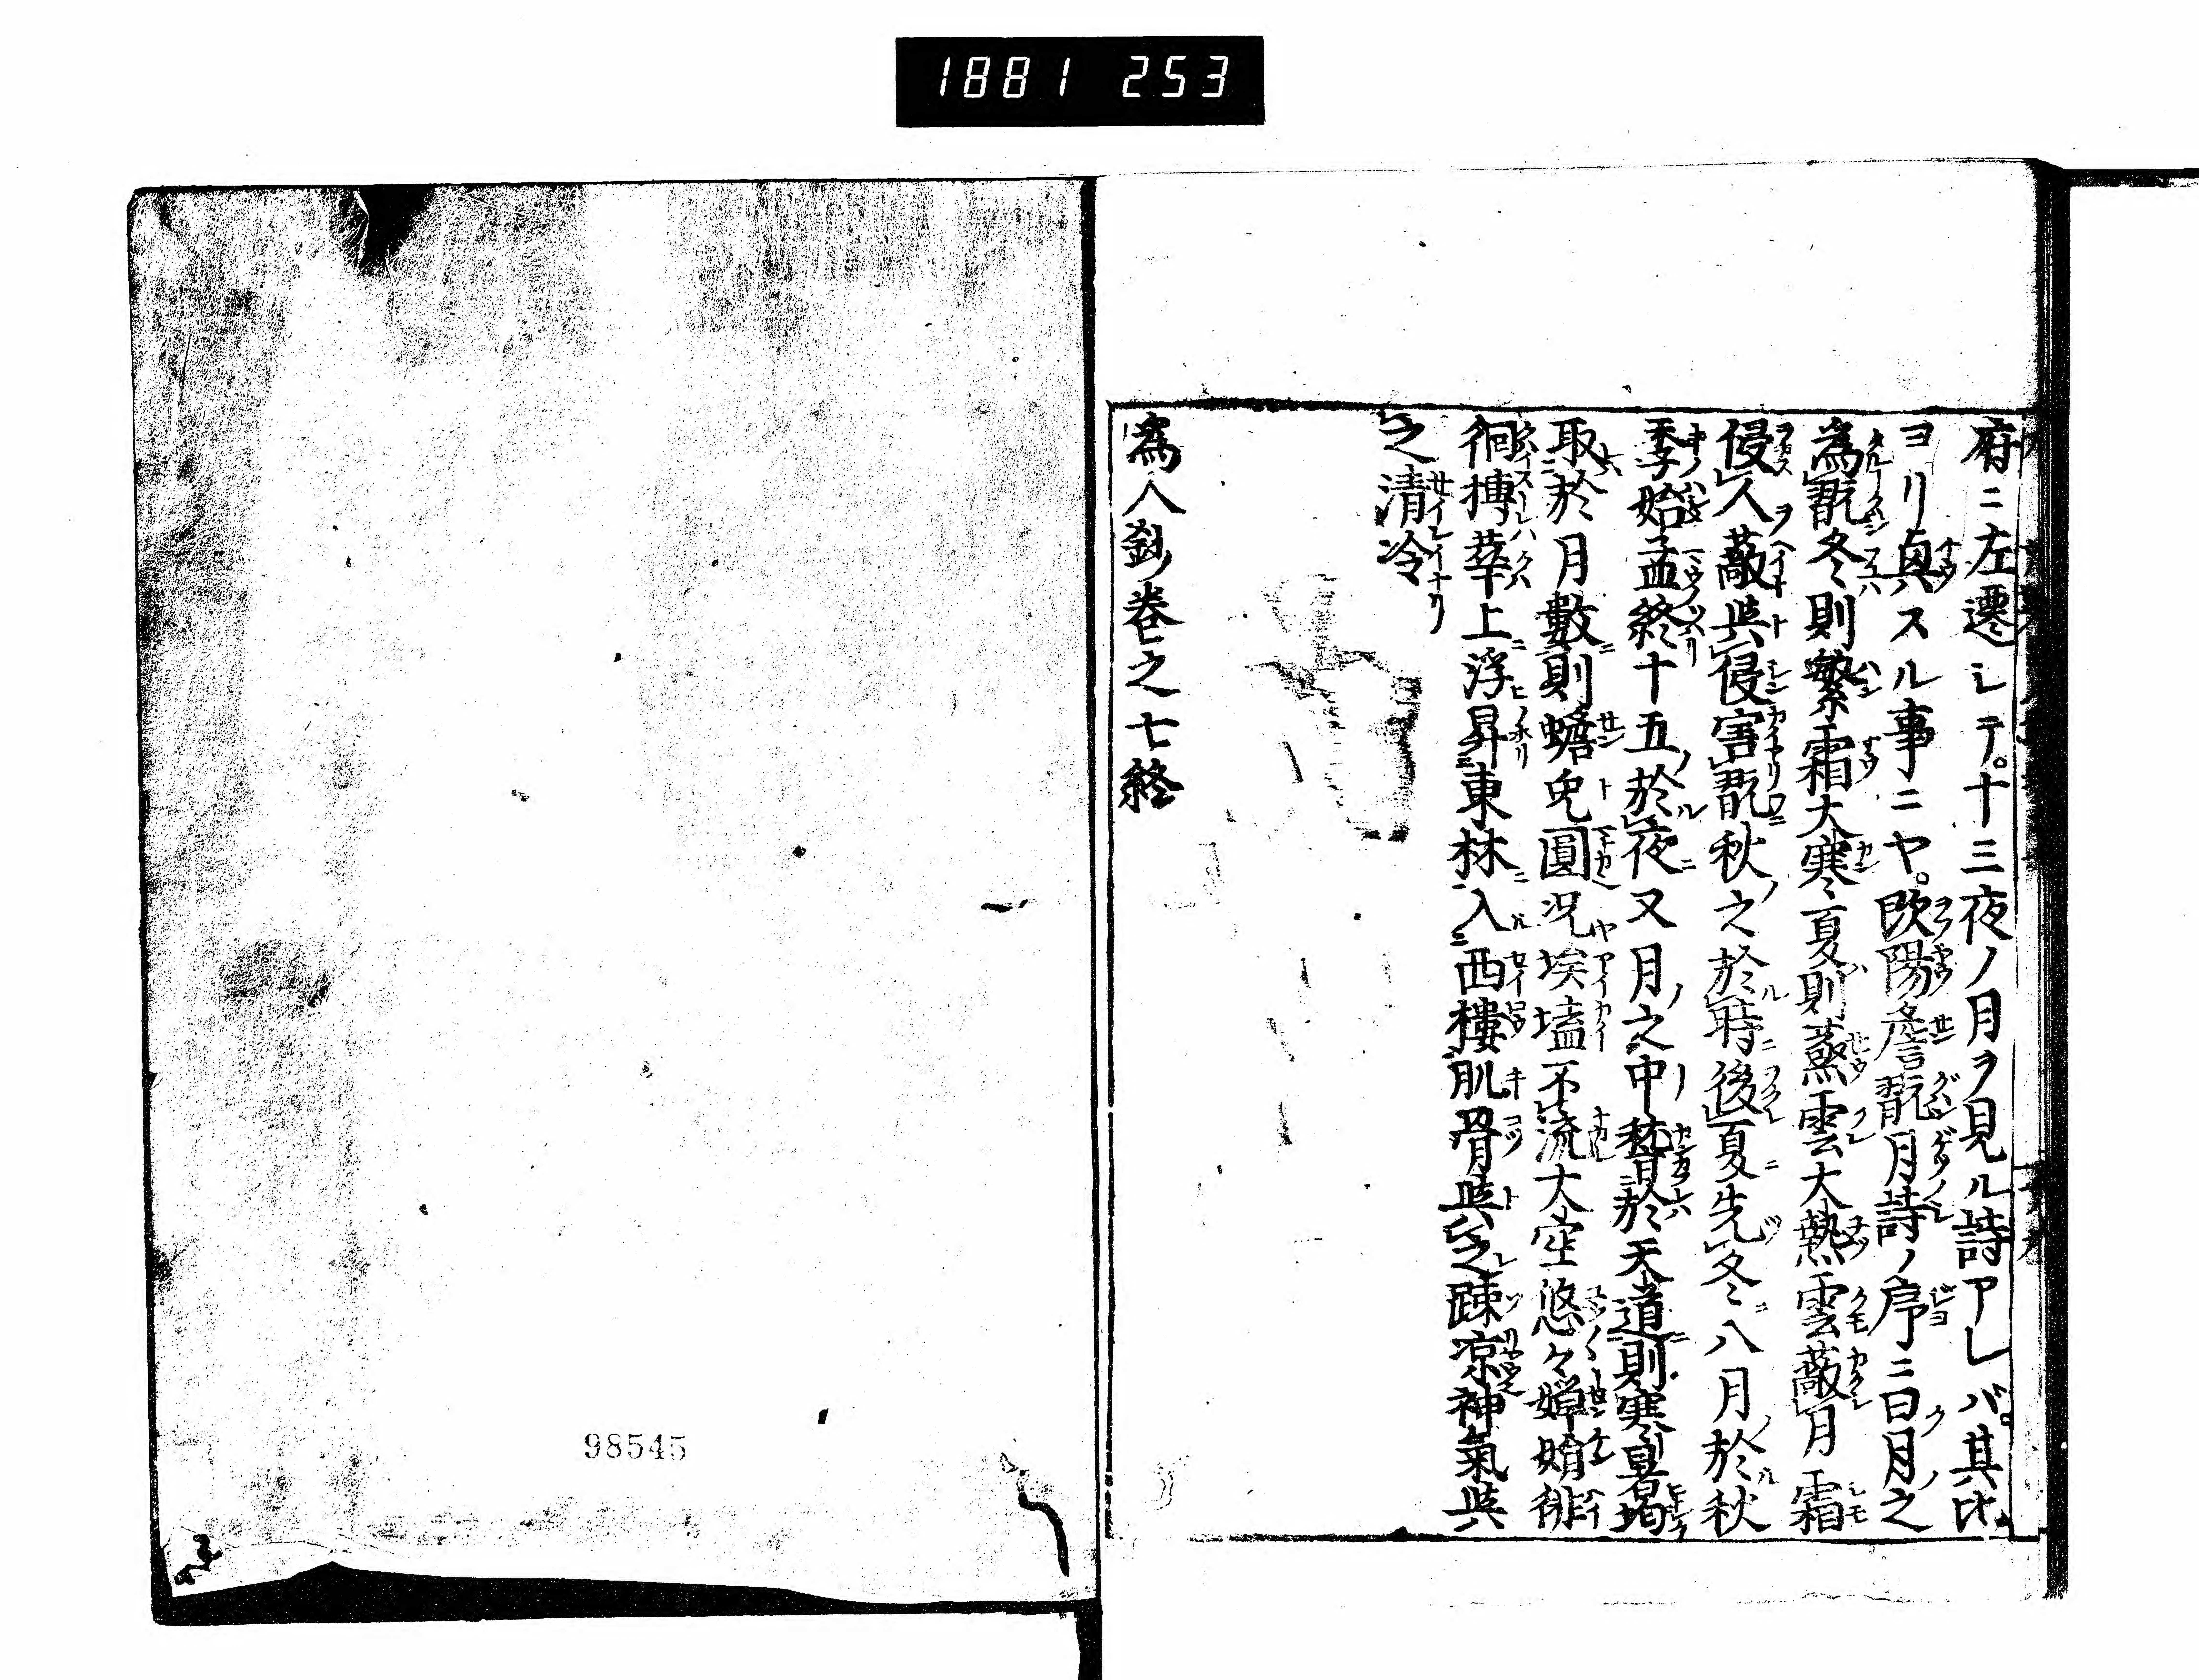 1881 253
府ニ左遷シテ。十三夜ノ月ヲ見ル詩アレバ。其比
ヨリ眞スル事ニヤ。欧陽詹翫月詩ノ序ニ曰月之
為翫冬則繁霜大寒夏則蒸雲大熱雲蔽月霜
侵人蔽與侵害翫秋之於時後夏先冬八月於秋
季始孟終十五於夜又月之中稽於天道則寒暑均
取於月數則蟾兔圓况埃壒不流大空悠々嬋娟徘
徊摶華上浮昇東林入西樓肌骨與之疎凉神氣與
之清冷
為人鈔卷之七終
98545